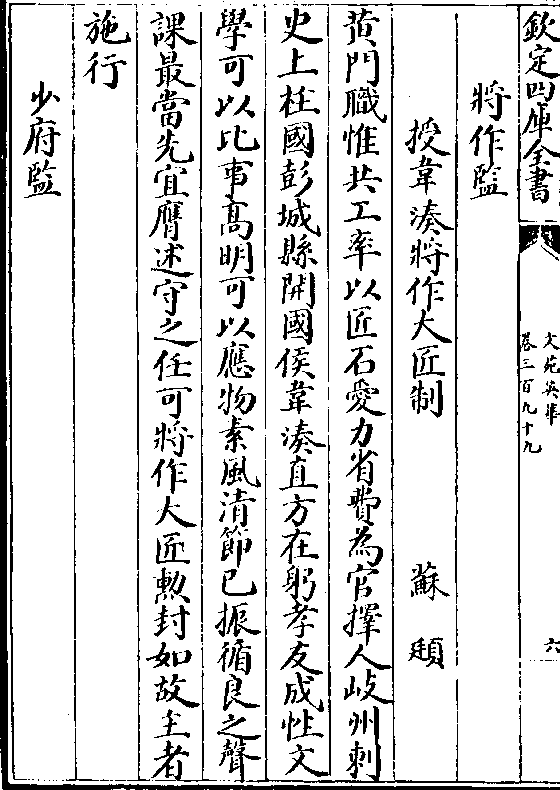 欽定四庫全書
文苑英華
卷三百九十九
六
將作監
授韋湊將作大匠制 蘇頲
黄門職惟共工率以匠石愛力省費為官擇人岐州刺
史上柱國彭城縣開國侯韋湊直方在躬孝友成性文
學可以比事髙明可以應物素風清節已振循良之聲
課最當先宜膺述守之任可將作大匠勲封如故主者
施行
少府監